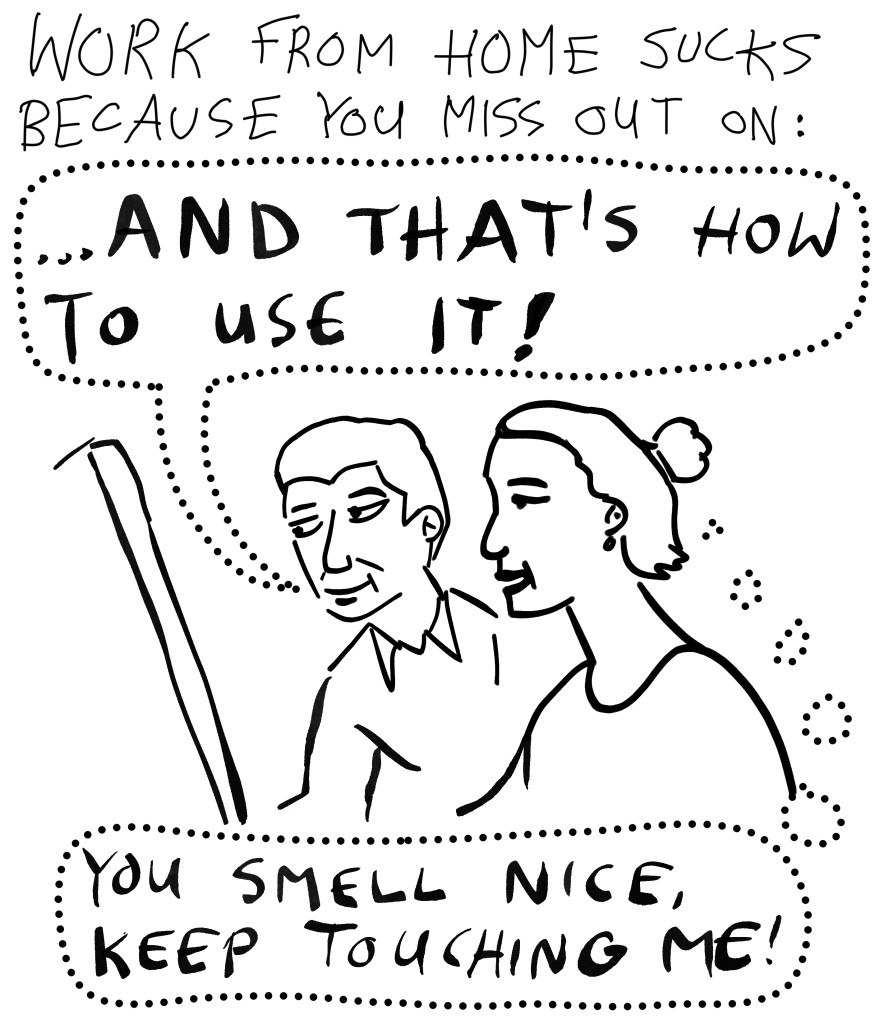 WORK FROM HOME SUCKS
BECAUSE YOU MISS OUT ON:
...AND THAT'S HOW
TO USE IT!
YOU SMELL NICE,
KEEP TOUCHING ME!